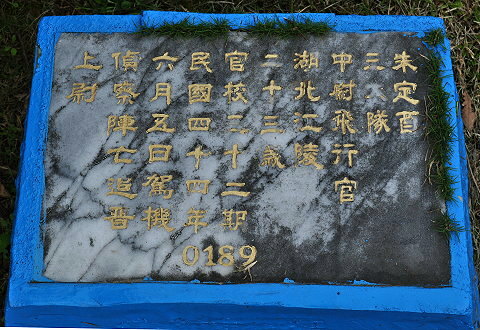 朱定酉
三大隊
中尉飛行官
湖北江陵
二十三歲
官校三十二期
民國四十四年
六月五日駕機
偵察陣亡追晉
上尉
0189